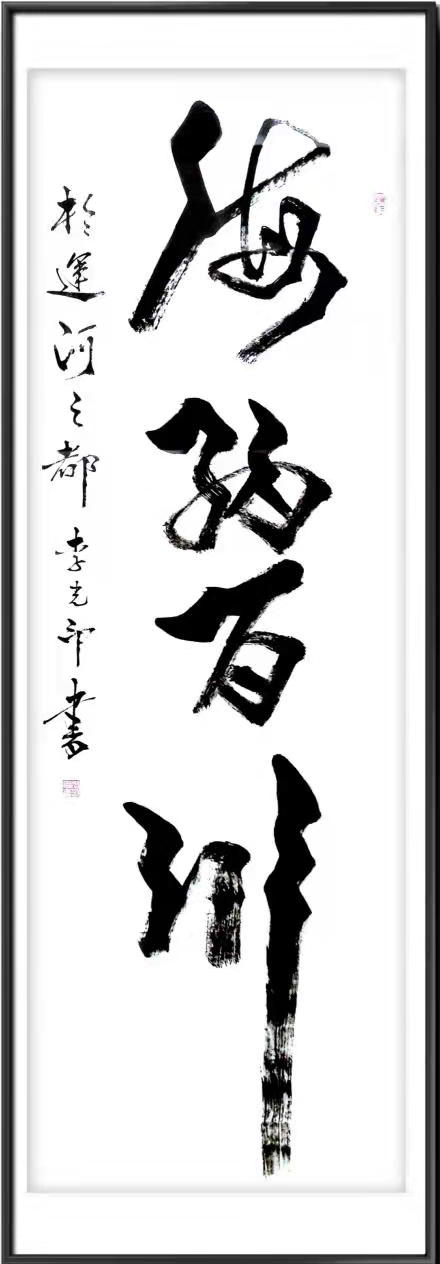 海纳百川
於運河之都李光印書